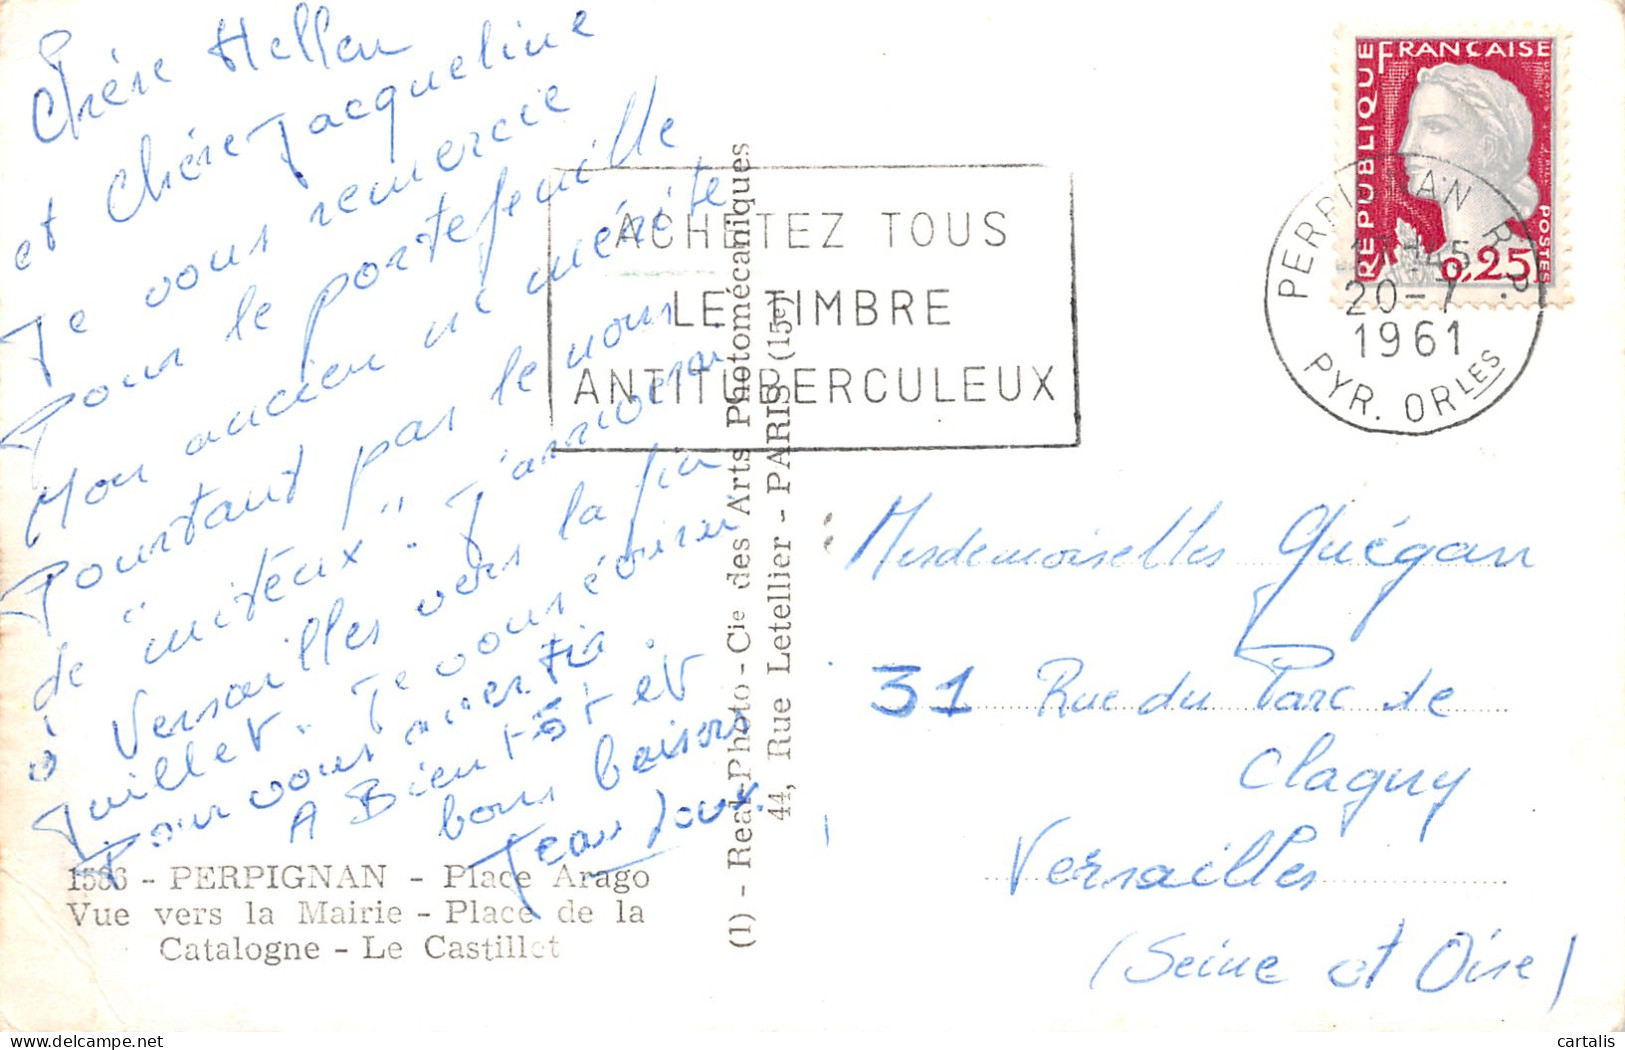 Chère Hellen
et Chère Jacqueline
Je vous remercie
Pour le portefeuille
Mon ancien ne mérite
Pourtant pas le nom
de "miteux". J'arriverai
à Versailles vers la fin
Juillet. Je vous écrirai
Pour vous avertir.
A Bientôt et
bons baisers
Jean Loux.
1586 - PERPIGNAN - Place Arago
Vue vers la Mairie - Place de la
Catalogne - Le Castillet
(1) - Real-Photo - Cie des Arts Photomécaniques
44, Rue Letellier - PARIS (15e)
ACHETEZ TOUS
LE TIMBRE
ANTITUBERCULEUX
REPUBLIQUE FRANCAISE
0,25
POSTES
PERPIGNAN R.P.
17H45
20-7
1961
PYR. ORLES
Mesdemoiselles Quégan
31 Rue du Parc de
Clagny
Versailles
(Seine et Oise)
cartalis